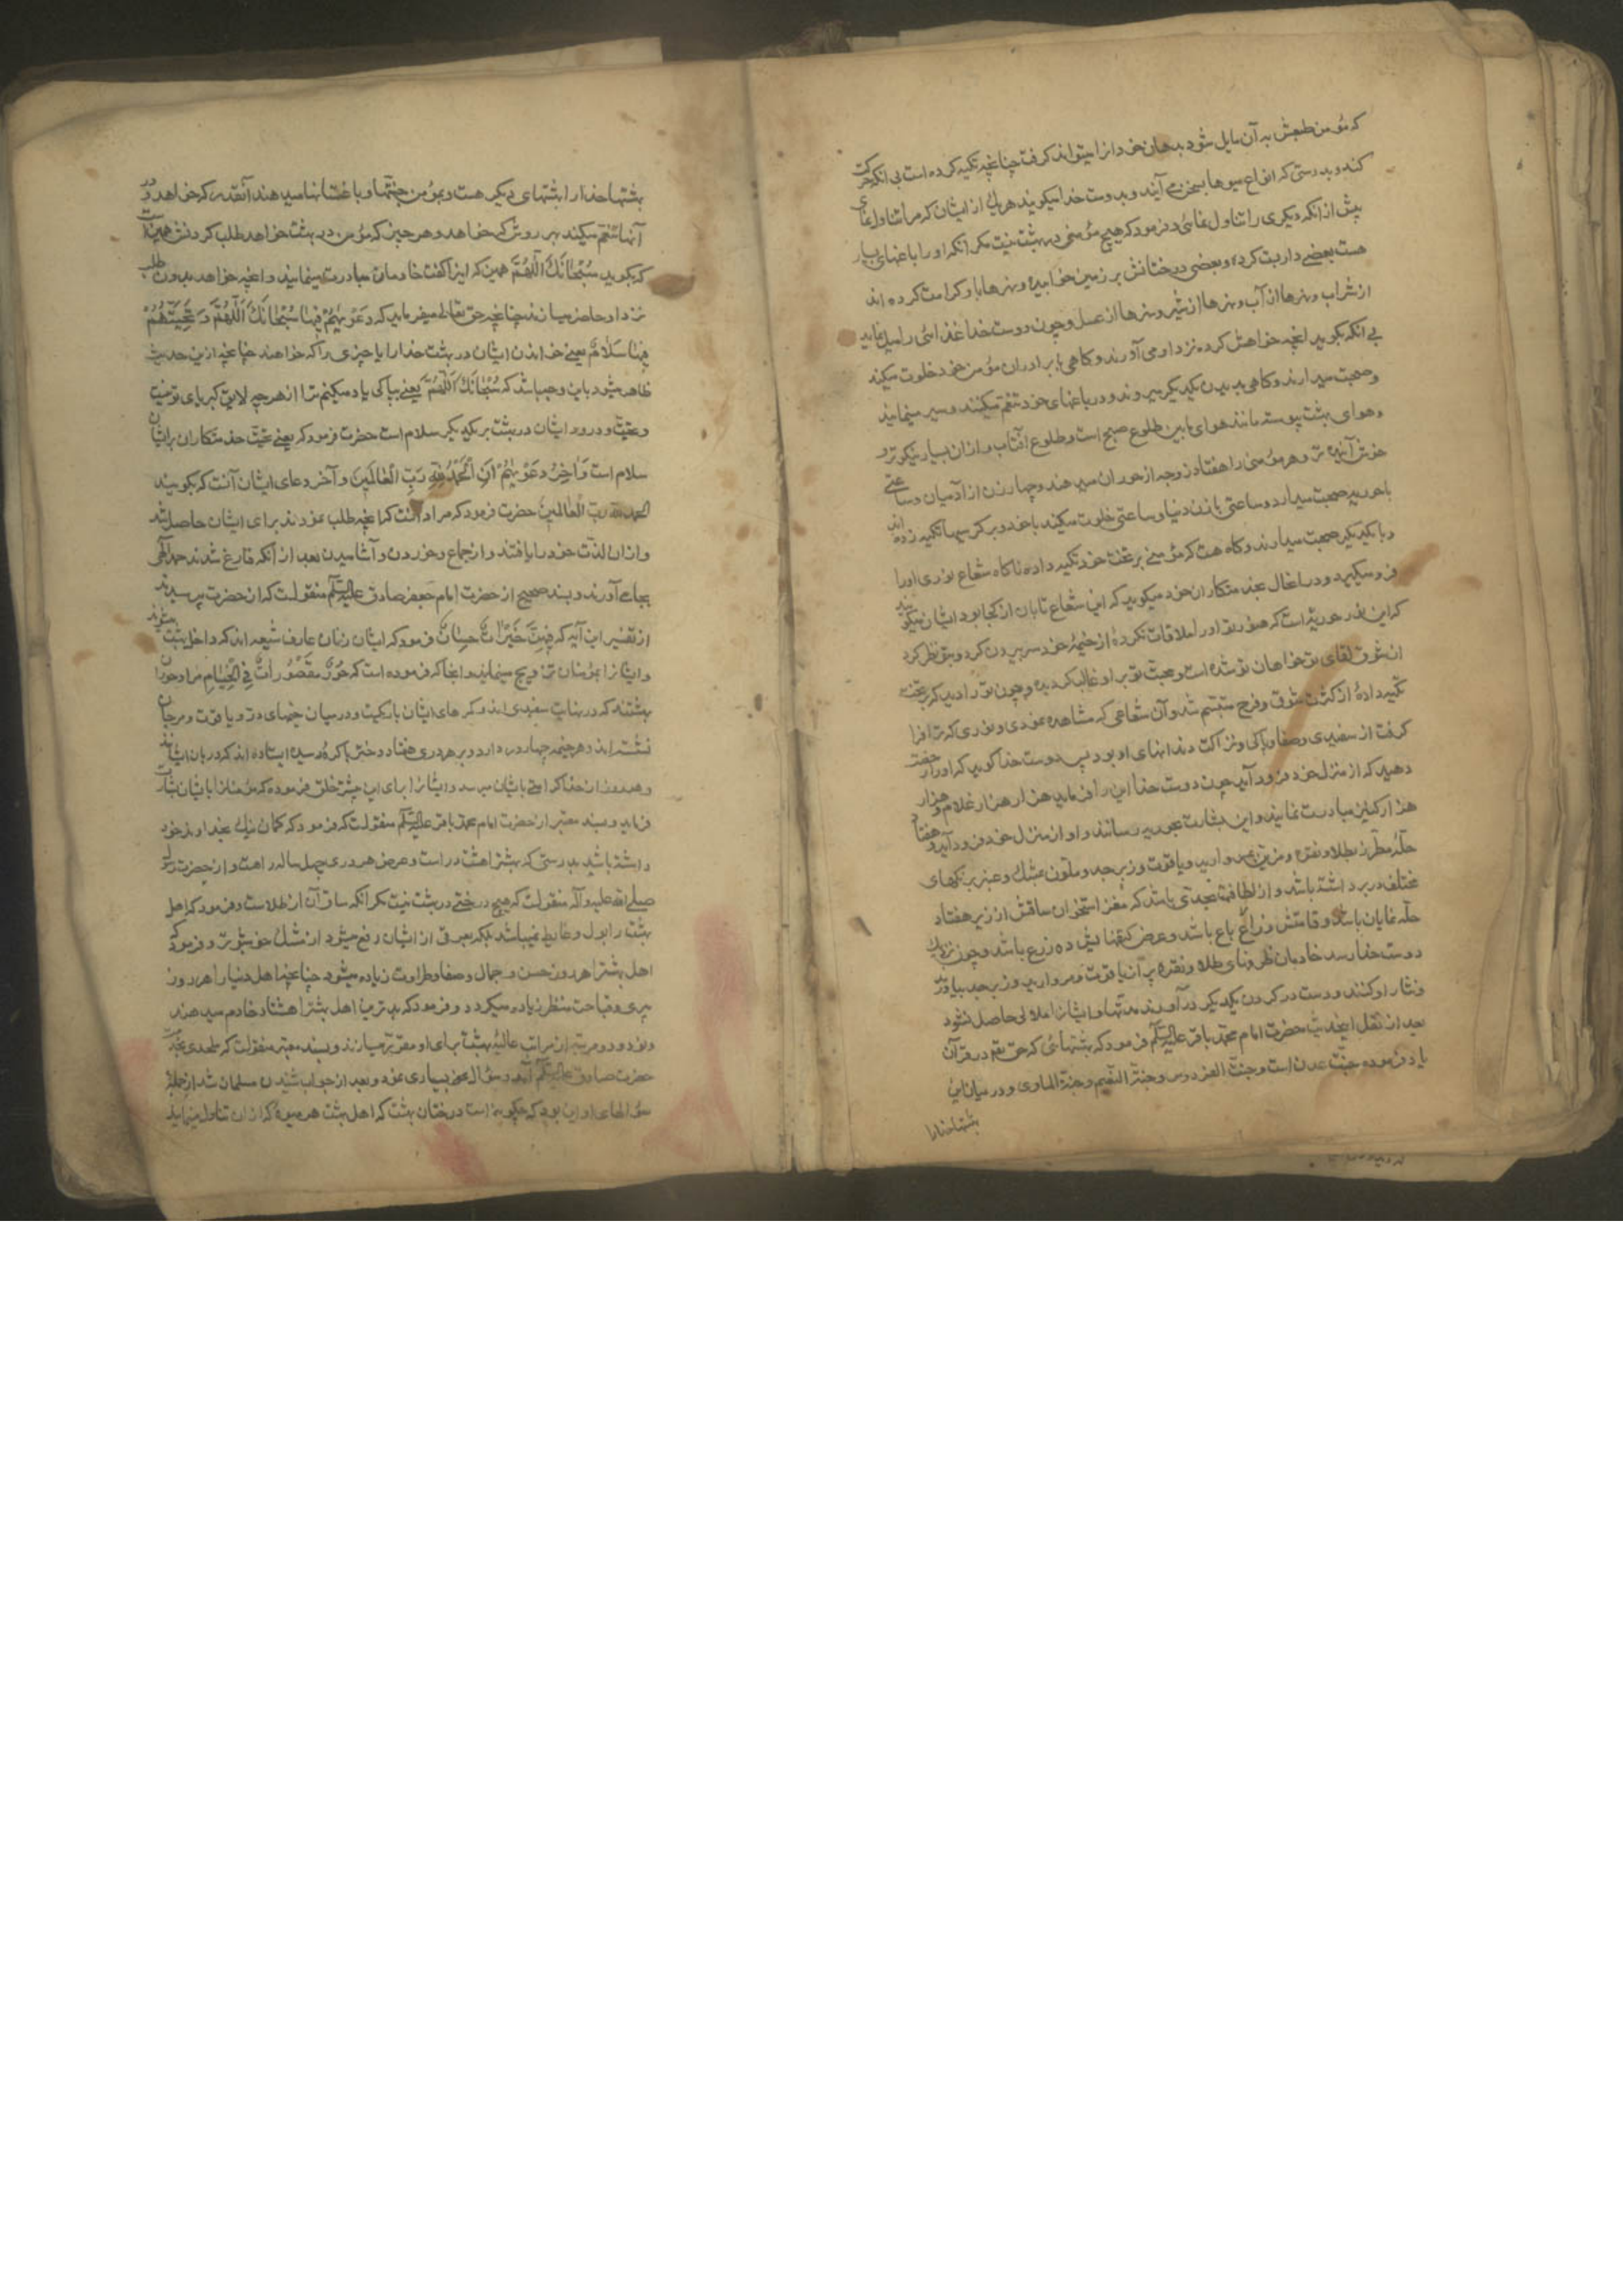 که مؤمن طبعش به آن مایل شود بدهان خود انرا میتواند کرفت چنانچه تکیه کرده است بی انکه حرکت
کند و بدرستی که انواع میوها بسخن می آیند و بدوست خدا میکویند هر یك از ایشان که مرا تناول نمای
پیش از انکه دیکری را تناول نمائی و فرمود که هیچ مؤمنی در بهشت نیست مکر انکه او را باغهای بسیار
هست بعضی داربست کرده و بعضی درختانش بر زمین خوابیده و نهرها باو کرامت کرده اند
از شراب و نهرها از آب و نهرها از شیر و نهرها از عسل و چون دوست خدا غذائی را میل نماید
بی انکه بکوید انچه خواهش کرده نزد او می آورند و کاهی با برادران مؤمن خود خلوت میکند
و صحبت میدارند و کاهی بدیدن یکدیکر میروند و در باغهای خود تنعم میکنند و سیر مینمایند
و هوای بهشت پیوسته مانند هوای مابین طلوع صبح است و طلوع افتاب و از ان بسیار نیکوتر و
خوش آینده تر و هر مؤمنی را هفتاد زوجه از حوران میدهند و چهار زن از آدمیان و ساعتی
با حوریه صحبت میدارد و ساعتی با زن دنیا و ساعتی خلوت میکند با خود و بر کرسیها تکیه زده اند
و با یکدیکر صحبت میدارند و کاه هست که مؤمنی بر تخت خود تکیه داده ناکاه شعاع نوری او را
فرو میکیرد و در انحال بخدمتکاران خود میکوید که این شعاع تابان از کجا بود ایشان میکویند
که این نور حوریه است که هنوز تو او را ملاقات نکردهٔ از خیمهٔ خود سر بیرون کرد و بتو نظر کرد
از شوق لقای تو خواهان تو شده است و محبت تو بر او غالب کردیده و چون تو را دید که بر تخت
تکیه دادهٔ از کثرت شوق و فرح متبسم شد و آن شعاعی که مشاهده نمودی و نوری که ترا فرا
کرفت از سفیدی و صفا و پاکی و نزاکت دندانهای او بود پس دوست خدا کوید که او را رخصت
دهید که از منزل خود فرود آید چون دوست خدا این را فرماید هزار هزار غلام و هزار
هزار کنیز مبادرت نمایند و این بشارت بحوریه رسانند و او از منزل خود فرود آید و هفتاد
حلهٔ مطرز بطلا و نقره و مزین بمروارید و یاقوت و زبرجد و ملون بمشك و عنبر برنکهای
مختلف در بر داشته باشد و از لطافت بحدی باشد که مغز استخوان ساقش از زیر هفتاد
حله نمایان باشد و قامتش ذراع باع باشد و عرض کتفهایش ده ذرع باشد و چون نزدیك
دوست خدا رسد خادمان ظرفهای طلا و نقره پر آن یاقوت و مروارید و زبرجد بیاورند
و نثار او کنند و دست در کردن یکدیکر در آورند مدتها و ایشانرا ملالی حاصل نشود
بعد از نقل این حدیث حضرت امام محمد باقر علیه السلام فرمود که بهشتهائی که حق تعم در قرآن
یاد فرموده جنت عدن است و جنت الفردوس و جنة النعیم و جنة الماوی و در میان این
بهشتها خدا را
بهشتها خدا را بهشتهای دیکر هست و بمؤمن جنتها و باغستانها میدهند آنقدر که خواهد و در
آنها تنعم میکند بهر روش که خواهد و هر چیز که مؤمن در بهشت خواهد طلب کردنش همین است
که بکوید سُبْحَانَكَ اللّهُمَّ همین که اینرا کفت خادمان مبادرت مینمایند و انچه خواهد بدون طلب
نزد او حاضر میسازند چنانچه حق تعالی میفرماید که دَعْوٰیهُمْ فِیهَا سُبْحَانَكَ اللّهُمَّ وَ تَحِیَّتُهُمْ
فِیهَا سَلَامٌ یعنی خواندن ایشان در بهشت خدا را یا چیزی را که خواهند چنانچه از این حدیث
ظاهر میشود باین وجه باشد که سُبْحَانَكَ اللّهُمَّ یعنی بپاکی یاد میکنم ترا از هر چه لایق کبریای تو نیست
و تحیت و درود ایشان در بهشت بر یکدیکر سلام است حضرت فرمود که یعنی تحیت خدمتکاران بر ایشان
سلام است وَاٰخِرُ دَعْوٰیهُمْ اَنِ الْحَمْدُ لِلّهِ رَبِّ الْعَالَمِینَ و آخر دعای ایشان آنست که بکویند
الحمد لله رب العالمین حضرت فرمود که مراد آنست که انچه طلب نمودند برای ایشان حاصل شد
و از ان لذت خود را یافتند و از جماع و خوردن و آشامیدن بعد از آنکه فارغ شدند حمد الهی
بجای آورند و بسند صحیح از حضرت امام جعفر صادق علیه السلام منقولست که از حضرت پرسیدند
از تفسیر این آیه که فِیهِنَّ خَیْرَاتٌ حِسَانٌ فرمود که ایشان زنان عارف شیعه اند که داخل بهشت میشوند
و ایشانرا بمؤمنان تزویج مینمایند و انجا که فرموده است که حُورٌ مَقْصُورَاتٌ فِی الْخِیَامِ مراد حوران
بهشتند که در نهایت سفیدی اند و کمرهای ایشان باریکست و در میان خیمهای در و یاقوت و مرجان
نشسته اند و هر خیمه چهار در دارد و بر هر دری هفتاد دختر باکرهٔ رسیده ایستاده اند که دربان ایشانند
و هر روز از خدا کرامتی بایشان میرسد و ایشانرا برای این پیشتر خلق فرموده که مؤمنانرا بایشان بشارت
فرماید و بسند معتبر از حضرت امام محمد باقر علیه السلام منقولست که فرمود که کمان نیك بخداوند خود
داشته باشید بدرستی که بهشترا هشت در است و عرض هر دری چهل ساله راهست و از حضرت رسول
صلی الله علیه و آله منقولست که هیچ درختی در بهشت نیست مکر انکه ساق آن از طلاست و فرمود که اهل
بهشت را بول و غایط نمیباشد بلکه بعرقی از ایشان دفع میشود از مشك خوشبوتر و فرمود که
اهل بهشترا هر روز حسن و جمال و صفا و طراوت زیاده میشود چنانچه اهل دنیا را هر روز
پیری و قباحت منظر زیاده میکردد و فرمود که پست ترین اهل بهشترا هشتاد خادم میدهند
و نود و دو مرتبه از مراتب عالیه بهشت برای او مقرر میسازند و بسند معتبر منقولست که ملحدی بخدمت
حضرت صادق علیه السلام آمد و سؤال نمود بسیاری نمود و بعد از جواب شنیدن مسلمان شد از جملهٔ
سؤالهای او این بود که چکونه است درختان بهشت که اهل بهشت هر میوهٔ که از ان تناول مینمایند